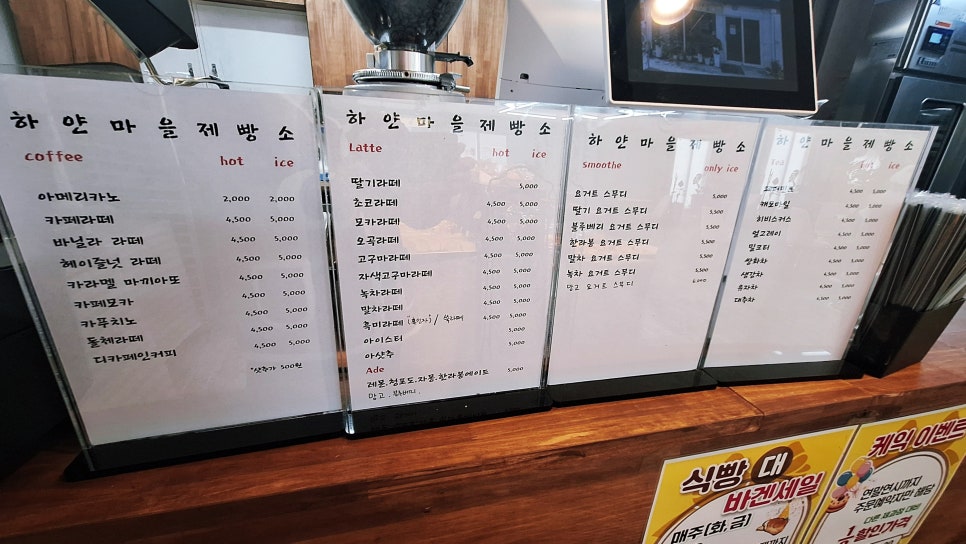 하얀마을제빵소
coffee hot ice
아메리카노 2,000 2,000
카페라떼 4,500 5,000
바닐라 라떼 4,500 5,000
헤이즐넛 라떼 4,500 5,000
카라멜 마끼아또 4,500 5,000
카페모카 4,500 5,000
카푸치노 4,500 5,000
돌체라떼 4,500 5,000
디카페인커피 4,500 5,000
*샷추가 500원
하얀마을제빵소
Latte hot ice
딸기라떼 5,000
초코라떼 4,500 5,000
모카라떼 4,500 5,000
오곡라떼 4,500 5,000
고구마라떼 4,500 5,000
자색고구마라떼 4,500 5,000
녹차라떼 4,500 5,000
말차라떼 4,500 5,000
흑미라떼 (흑임자) / 쑥라떼 4,500 5,000
아이스티 5,000
아샷추 5,000
Ade
레몬.청포도.자몽.한라봉에이드 5,000
망고.
하얀마을제빵소
Smoothe only ice
요거트 스무디 5,000
딸기 요거트 스무디 5,500
블루베리 요거트 스무디 5,500
한라봉 요거트 스무디 5,500
말차 요거트 스무디 5,500
녹차 요거트 스무디 5,500
망고 요거트 스무디
하얀마을제빵소
Tea hot ice
4,500 5,000
캐모마일 4,500 5,000
히비스커스 4,500 5,000
얼그레이 4,500 5,000
밀크티 4,500 5,000
쌍화차 4,500 5,000
생강차 4,500 5,000
유자차 4,500 5,000
대추차 4,500 5,000
식빵 대
바겐세일
매주(화,금)
케익 이벤트
연말연시까지
주문예약자만 해당
다른 제과점 대비
할인가격